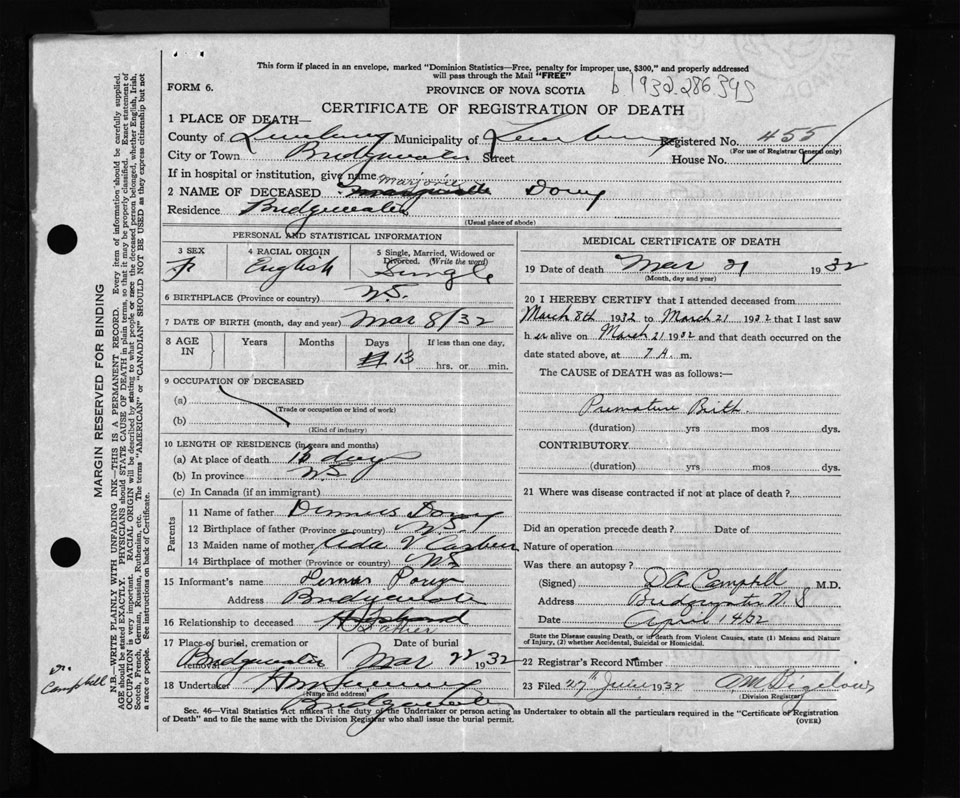 This form if placed in an envelope, marked "Dominion Statistics—Free, penalty for improper use, $300," and properly addressed
will pass through the Mail "FREE"
FORM 6.
PROVINCE OF NOVA SCOTIA
b 1932.286395
CERTIFICATE OF REGISTRATION OF DEATH
1 PLACE OF DEATH—
County of Lunenburg Municipality of Lunenburg Registered No. 455
(For use of Registrar General only)
City or Town Bridgewater Street House No.
If in hospital or institution, give name
Marjorie
2 NAME OF DECEASED Dorey
Residence Bridgewater
(Usual place of abode)
PERSONAL AND STATISTICAL INFORMATION
3 SEX F
4 RACIAL ORIGIN English
5 Single, Married, Widowed or Divorced. (Write the word) Single
6 BIRTHPLACE (Province or country) N.S.
7 DATE OF BIRTH (month, day and year) Mar 8/32
8 AGE IN Years Months Days 13 If less than one day, hrs. or min.
9 OCCUPATION OF DECEASED
(a)
(Trade or occupation or kind of work)
(b)
(Kind of industry)
10 LENGTH OF RESIDENCE (in years and months)
(a) At place of death 13 days
(b) In province N.S.
(c) In Canada (if an immigrant)
Parents
11 Name of father Dorey
12 Birthplace of father (Province or country) N.S.
13 Maiden name of mother Ada V
14 Birthplace of mother (Province or country) N.S.
15 Informant's name
Address Bridgewater
16 Relationship to deceased Husband
Father
17 Place of burial, cremation or removal Bridgewater Date of burial Mar 22 1932
18 Undertaker
(Name and address)
Bridgewater
MEDICAL CERTIFICATE OF DEATH
19 Date of death Mar 21 1932
(Month, day and year)
20 I HEREBY CERTIFY that I attended deceased from
March 8th 1932 to March 21 1932 that I last saw
her alive on March 21 1932 and that death occurred on the
date stated above, at 7 A. m.
The CAUSE of DEATH was as follows:—
Premature Birth.
(duration) yrs mos dys.
CONTRIBUTORY
(duration) yrs mos dys.
21 Where was disease contracted if not at place of death?
Did an operation precede death? Date of
Nature of operation
Was there an autopsy?
(Signed) D A Campbell M.D.
Address Bridgewater N S
Date April 14/32
State the Disease causing Death, or in death from Violent Causes, state (1) Means and Nature
of Injury, (2) whether Accidental, Suicidal or Homicidal.
22 Registrar's Record Number
23 Filed 27th June 1932
(Division Registrar)
Sec. 46—Vital Statistics Act makes it the duty of the Undertaker or person acting as Undertaker to obtain all the particulars required in the "Certificate of Registration
of Death" and to file the same with the Division Registrar who shall issue the burial permit.
(OVER)
MARGIN RESERVED FOR BINDING
N.B.—WRITE PLAINLY WITH UNFADING INK—THIS IS A PERMANENT RECORD. Every item of information should be carefully supplied.
AGE should be stated EXACTLY. PHYSICIANS should STATE CAUSE OF DEATH in plain terms, so that it may be properly classified. Exact statement of
OCCUPATION is very important. RACIAL ORIGIN will be described by stating to what people or race the deceased person belonged, whether English, Irish,
Scotch, French, German, Russian, Ruthenian, etc. The terms "AMERICAN" or "CANADIAN" SHOULD NOT BE USED as they express citizenship but not
a race or people. See instructions on back of Certificate.
Dr.
Campbell